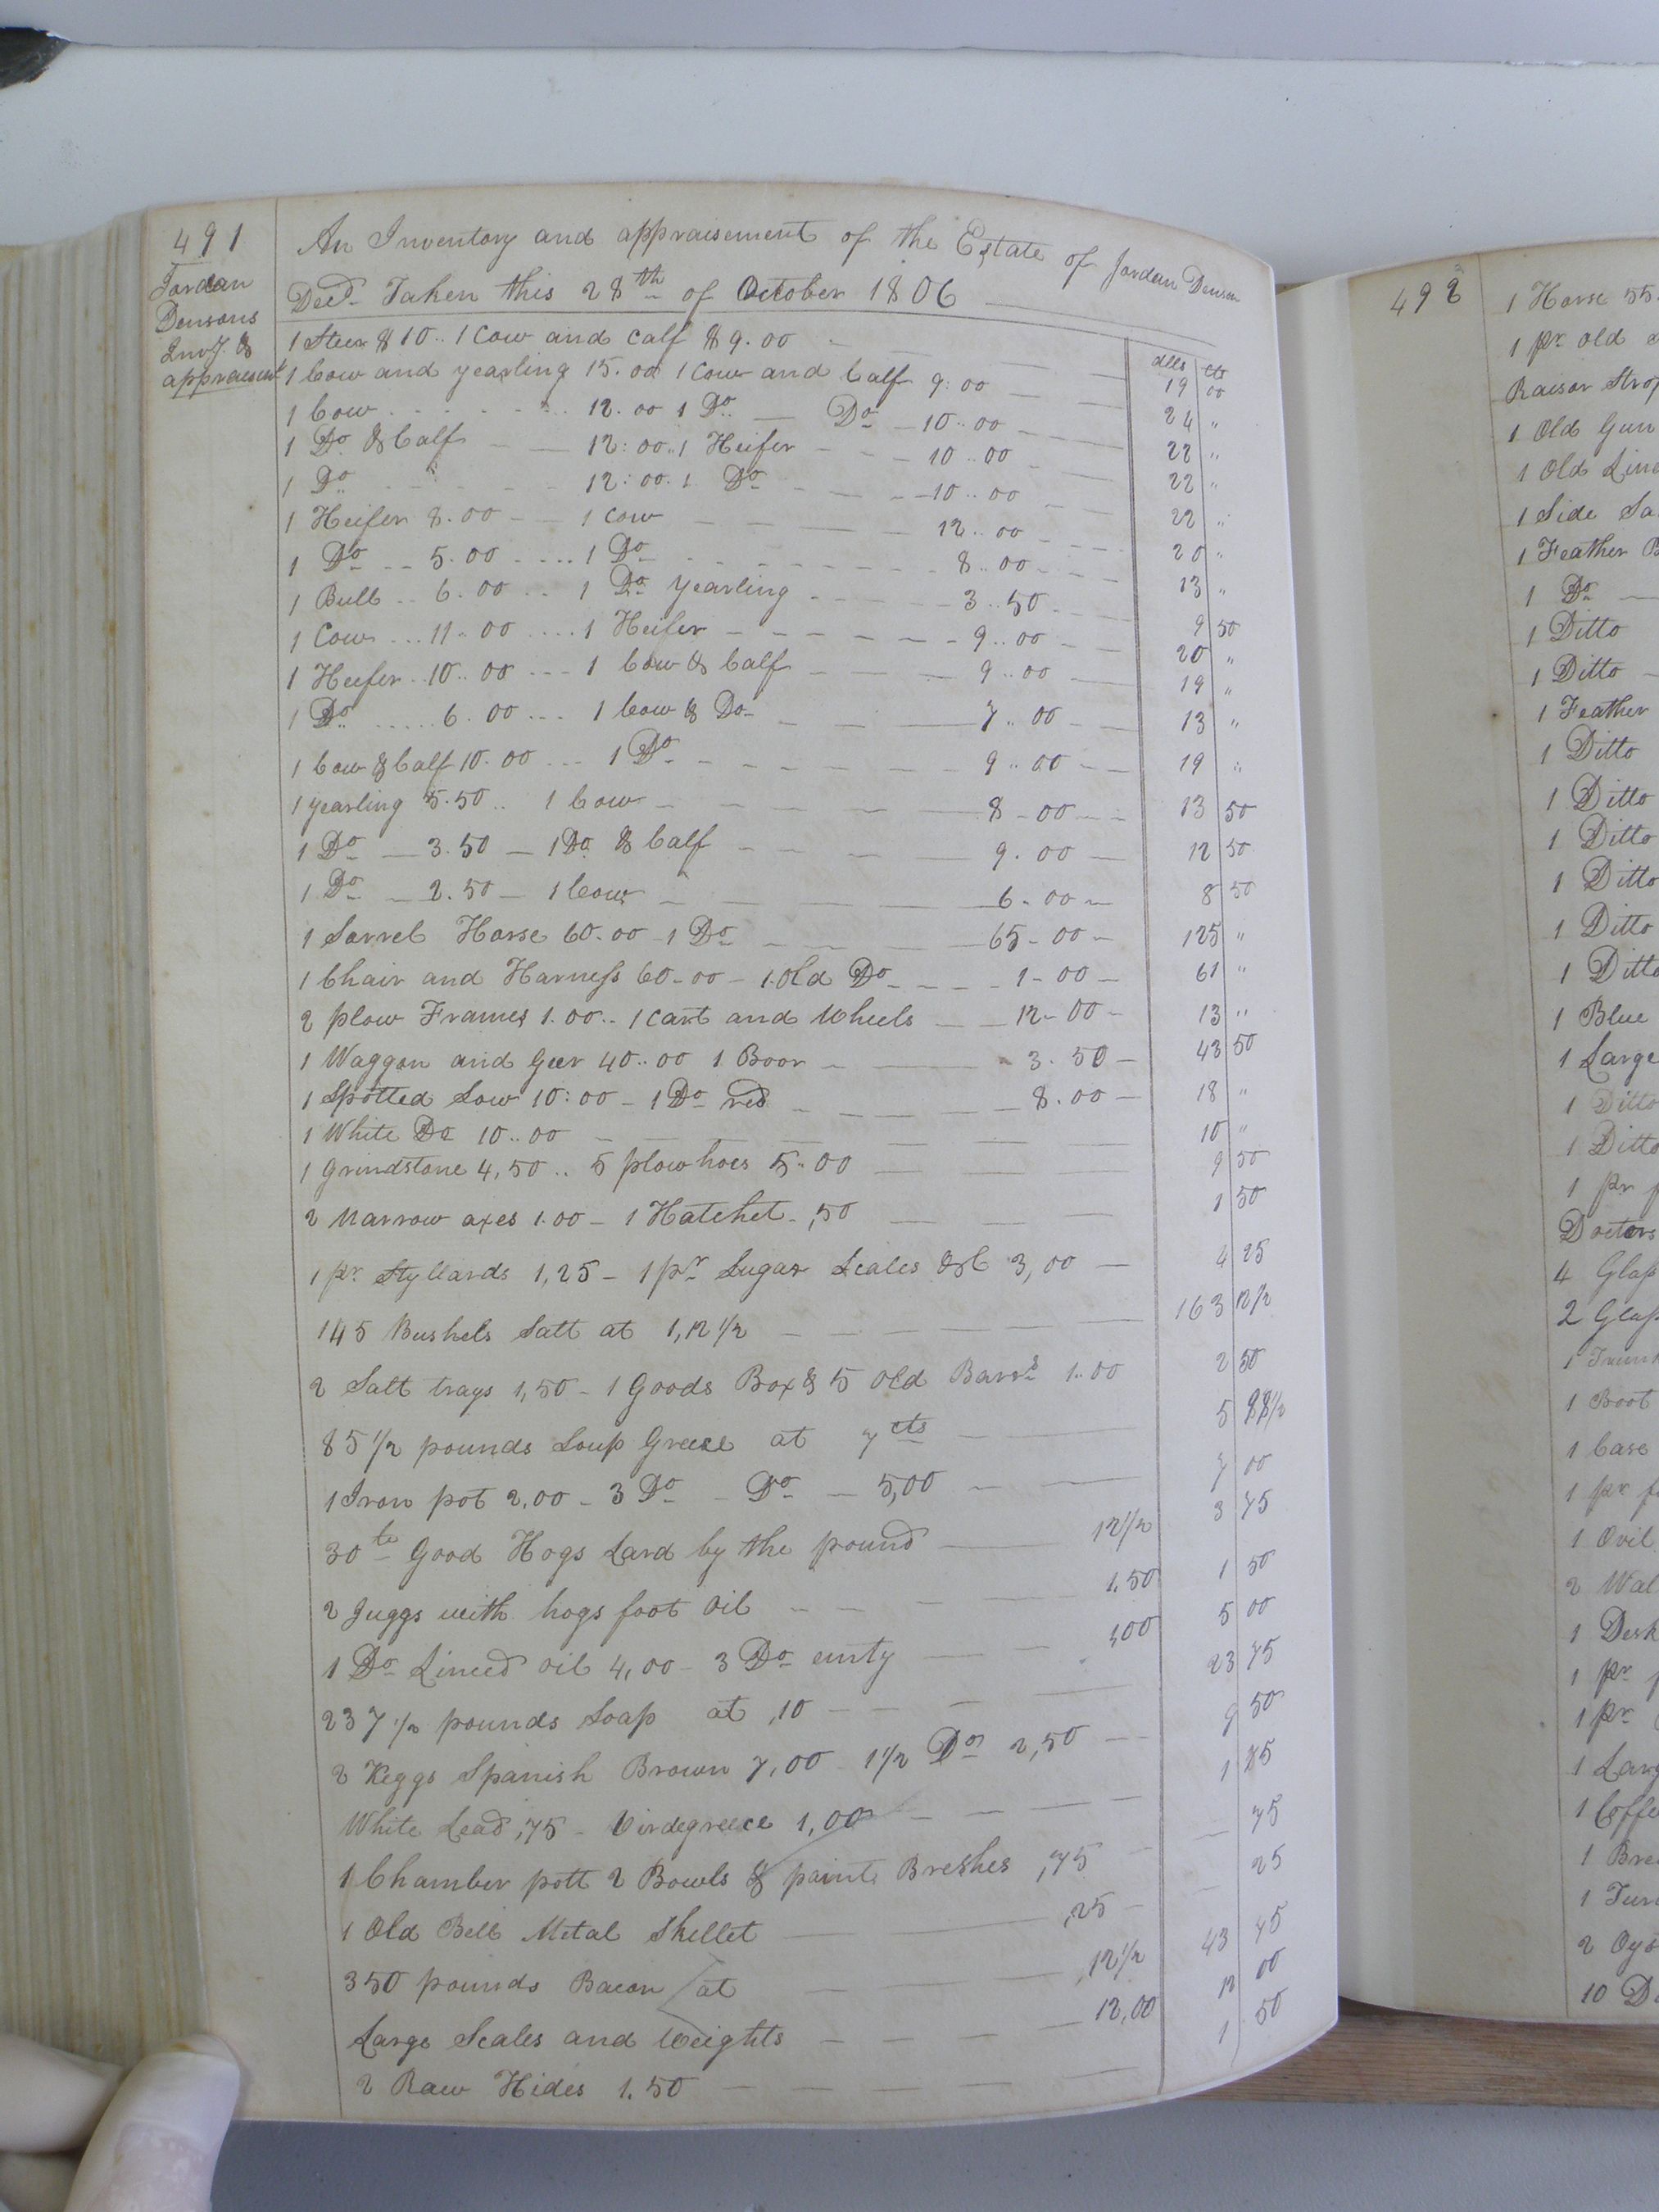 491
Jordan
Densons
Invy. &
appraisemt
An Inventory and appraisement of the Estate of Jordan Denson
Decd. Taken this 28th of October 1806
dlls cts
1 Steer $10.. 1 Cow and Calf $9.00 — 19 00
1 Cow and yearling 15.00 1 Cow and Calf 9:00 — 24 "
1 Cow 12.00 1 Do. — Do — 10..00 — 22 "
1 Do. & Calf — 12:00.. 1 Heifer — 10..00 — 22 "
1 Do. 12:00. 1 Do — 10..00 — 22 "
1 Heifer 8.00 — 1 Cow — 12..00 — 20 "
1 Do — 5.00 .... 1 Do — 8..00 — 13 "
1 Bull .. 6.00 .. 1 Do yearling — 3..50 — 9 50
1 Cow ... 11..00 .... 1 Heifer — 9..00 — 20 "
1 Heifer .. 10..00 --- 1 Cow & Calf — 9..00 — 19 "
1 Do ..... 6.00 ... 1 Cow & Do — 7..00 — 13 "
1 Cow & Calf 10.00 ... 1 Do — 9..00 — 19 "
1 yearling 5.50 .. 1 Cow — 8-00 — 13 50
1 Do — 3.50 — 1 Do. & Calf — 9.00 — 12 50
1 Do — 2.50 — 1 Cow — 6-00 — 8 50
1 Sorrel Horse 60-00 - 1 Do — 65-00 — 125 "
1 Chair and Harness 60-00 - 1 Old Do — 1-00 — 61 "
2 plow Frames 1.00.. 1 Cart and Wheels — 12-00 — 13 "
1 Waggon and Geer 40..00 1 Boor — 3.50 — 43 50
1 Spotted Sow 10:00 — 1 Do red — 8.00 — 18 "
1 White Do 10..00 — 10 "
1 Grindstone 4,50.. 5 plow hoes 5..00 — 9 50
2 Narrow axes 1.00 — 1 Hatchet - ,50 — 1 50
1 pr. Styllards 1,25 — 1 pr Sugar Scales &C 3,00 — 4 25
145 Bushels Salt at 1,12 1/2 — 163 12 1/2
2 Salt trays 1,50 - 1 Goods Box & 5 Old Barrs 1..00 2 50
85 1/2 pounds Soup Greese at 7 cts — 5 98 1/2
1 Iron pot 2.00 - 3 Do — Do — 5,00 — 7 00
30 lb Good Hogs Lard by the pound — 12 1/2 3 75
2 Juggs with hogs foot oil — 1.50 1 50
1 Do Linced oil 4,00 - 3 Do emty — 1,00 5 00
237 1/2 pounds Soap at ,10 — 23 75
2 Keggs Spanish Brown 7,00 - 1 1/2 Do 2,50 — 9 50
White Lead ,75 - Virdegreece 1,00 — 1 75
1 Chamber pott 2 Bowls & paint Breshes ,75 — 75
1 Old Bell Metal Skellet — ,25 — 25
350 pounds Bacon at — ,12 1/2 43 75
Large Scales and Weights — 12,00 12 00
2 Raw Hides 1.50 — 1 50
492
1 Horse 55
1 pr. old
Raisor Strop
1 Old Gun
1 Old
1 Side
1 Feather
1 Do
1 Ditto
1 Ditto
1 Feather
1 Ditto
1 Ditto
1 Ditto
1 Ditto
1 Ditto
1 Ditto
1 Blue
1 Large
1 Ditto
1 Ditto
1 pr
Doctors
4 Glass
2 Glass
1 Trunk
1 Boot
1 Case
1 pr
1 Ovil
2
1 Desk
1 pr
1 pr
1
1
1
1
2
10